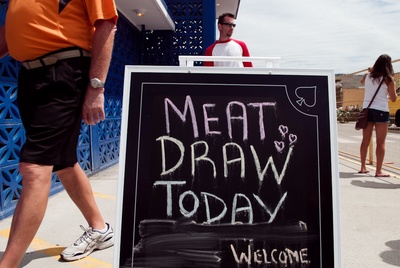 MEAT
DRAW
TODAY
WELCOME